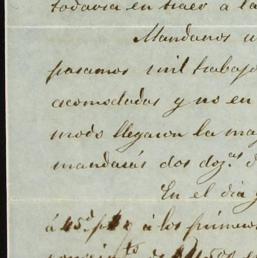 todavia en traer a la
Mandanos u
pasamos mil trabajo
acomodadas y no en
modo llegaron la ma
mandarás dos doz.as d
En el dia
á 45 á los primeros